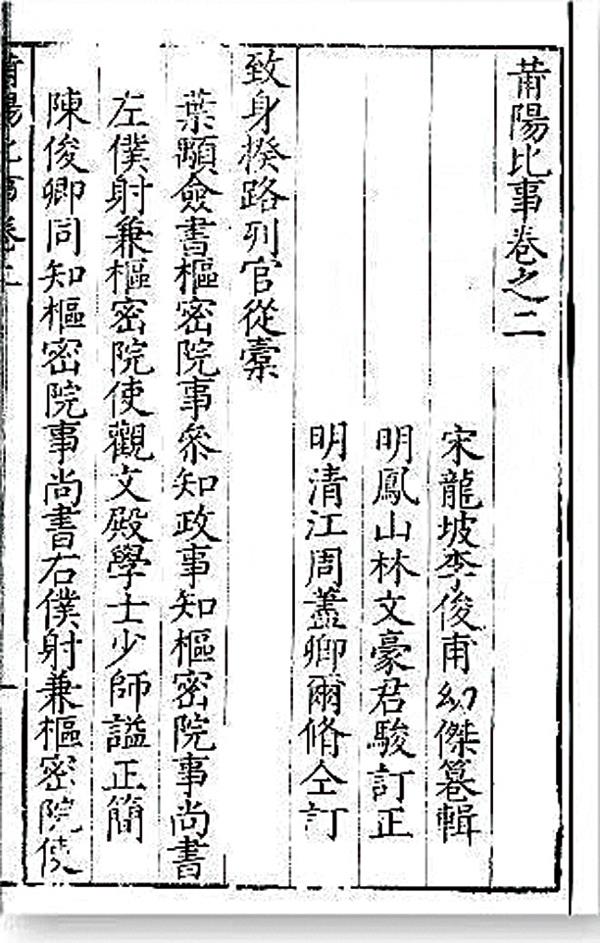 莆陽比事卷之二
宋龍坡李俊甫幼傑纂輯
明鳳山林文豪君駿訂正
明清江周藎卿爾脩仝訂
致身揆路列官從橐
葉顒僉書樞密院事叅知政事知樞密院事尚書
左僕射兼樞密院使觀文殿學士少師謚正簡
陳俊卿同知樞密院事尚書右僕射兼樞密院使
莆陽比事卷二
一